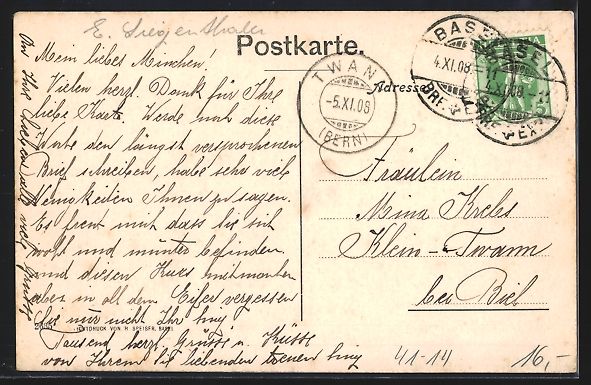 E. Siegenthaler
Postkarte.
Adresse
BASEL
4.XI.08.-11
BRF. EXP.
BASEL
4.XI.08
BRF. EXP.
TWANN
-5.XI.08
(BERN)
Mein liebes Minchen!
Vielen herzl. Dank für Ihre
liebe Karte. Werde und diese
Woche den längst versprochenen
Brief schreiben, habe sehr viele
Neuigkeiten Ihnen zu sagen.
Es freut mich dass Sie sich
wohl und munter befinden
und diesen Kurs mitmachen
aber in all dem Eifer vergessen
Sie mir nicht Ihr
LICHTDRUCK VON H. SPEISER, BASEL
Tausend herzl. Grüsse u. Küsse
von Ihrem Sie liebenden treuen
Fräulein
Mina Krebs
Klein-Twann
bei Biel
41-14
16,-